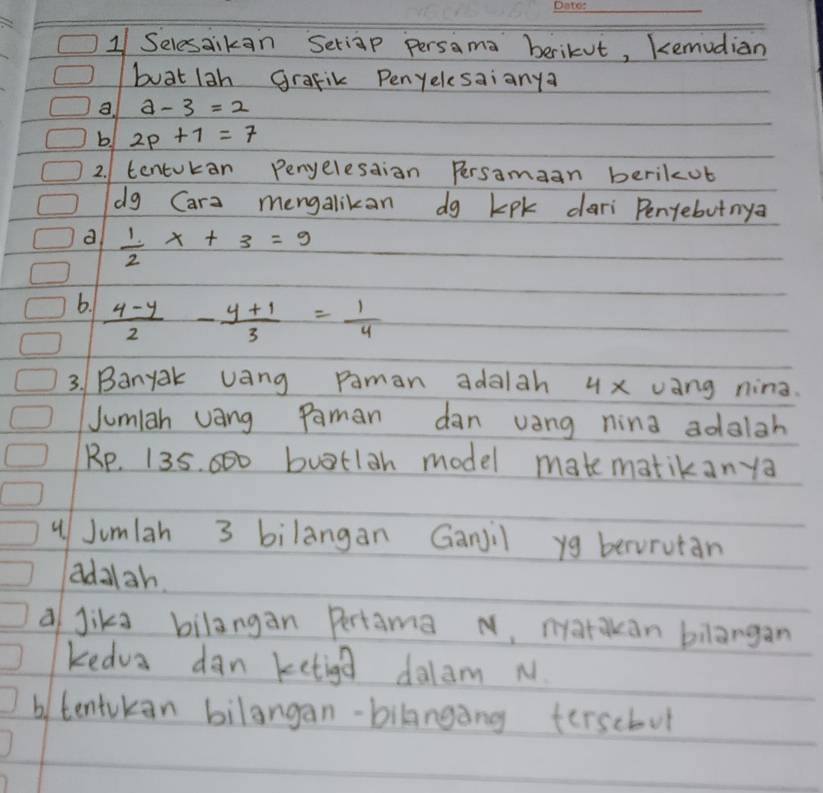 Date:
1 Selesaikan Setiap persama berikut, kemudian
buat lah grafik Penyelesaianya
a. a - 3 = 2
b. 2p + 1 = 7
2. tentukan Penyelesaian Persamaan berikut
dg Cara mengalikan dg kpk dari Penyebutnya
a. 1/2 x + 3 = 9
b. 4-y/2 - y+1/3 = 1/4
3. Banyak uang Paman adalah 4x uang nina.
Jumlah uang Paman dan uang nina adalah
Rp. 135.000 buatlah model matematikanya
4. Jumlah 3 bilangan Ganjil yg berurutan
adalah.
a. Jika bilangan Pertama N, nyatakan bilangan
kedua dan ketiga dalam N.
b. tentukan bilangan-bilangang tersebut